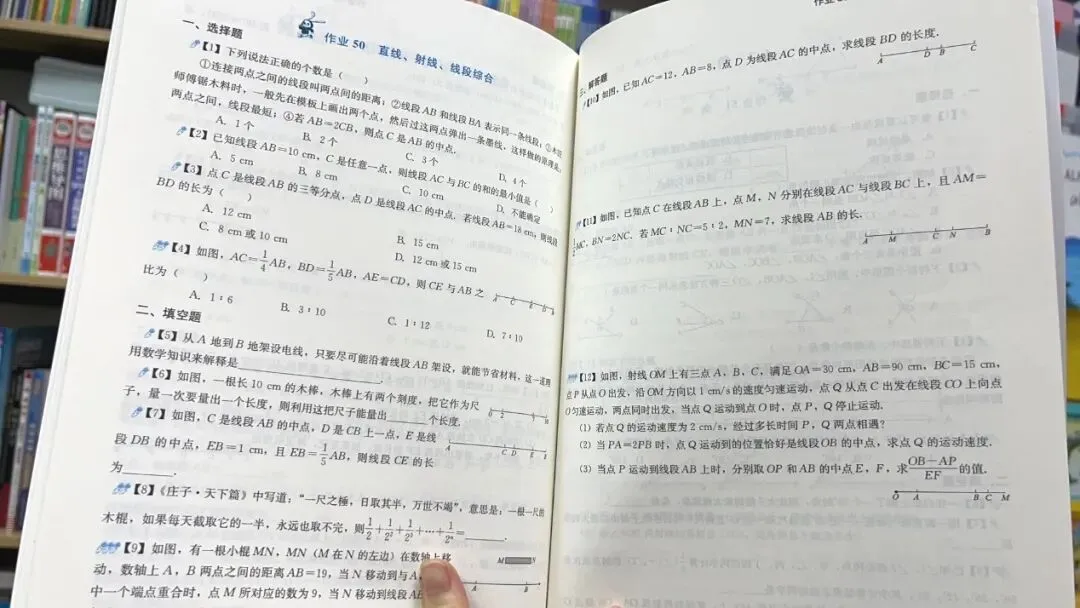 作业 50 直线、射线、线段综合
一、选择题
【1】下列说法正确的个数是( )
①连接两点之间的线段叫两点间的距离;②线段 AB 和线段 BA 表示同一条线段;③木匠
师傅锯木料时,一般先在模板上画出两个点,然后过这两点弹出一条墨线,这样做的原理是:
两点之间,线段最短;④若 AB=2CB,则点 C 是 AB 的中点.
A. 1个 B. 2个 C. 3个 D. 4个
【2】已知线段 AB=10 cm,C 是任意一点,则线段 AC 与 BC 的和的最小值是( )
A. 5 cm B. 8 cm C. 10 cm D. 不能确定
【3】点 C 是线段 AB 的三等分点,点 D 是线段 AC 的中点.若线段 AB=18 cm,则线段
BD 的长为( )
A. 12 cm B. 15 cm
C. 8 cm 或 10 cm D. 12 cm 或 15 cm
【4】如图,AC=1/4 AB,BD=1/5 AB,AE=CD,则 CE 与 AB 之
比为( )
A. 1∶6 B. 3∶10 C. 1∶12 D. 7∶10
二、填空题
【5】从 A 地到 B 地架设电线,只要尽可能沿着线段 AB 架设,就能节省材料,这一道理
用数学知识来解释是______.
【6】如图,一根长 10 cm 的木棒,木棒上有两个刻度,把它作为尺
子,量一次要量出一个长度,则利用这把尺子能量出______个长度.
【7】如图,C 是线段 AB 的中点,D 是 CB 上一点,E 是线
段 DB 的中点,EB=1 cm,且 EB=1/5 AB,则线段 CE 的长
为______.
C D E
【8】《庄子·天下篇》中写道:“一尺之棰,日取其半,万世不竭”,意思是:一根一尺的
木棍,如果每天截取它的一半,永远也取不完,则 1/2+1/2²+1/2³+…+1/2ⁿ=______.
【9】如图,有一根小棍 MN,MN(M 在 N 的左边)在数轴上移
动,数轴上 A,B 两点之间的距离 AB=19,当 N 移动到与 A,
中一个端点重合时,点 M 所对应的数为 9,当 N 移动到线段 AB
M N
A B
作业
三、解答题
【10】如图,已知 AC=12,AB=8,点 D 为线段 AC 的中点,求线段 BD 的长度.
A D B C
【11】如图,已知点 C 在线段 AB 上,点 M,N 分别在线段 AC 与线段 BC 上,且 AM=
1/2 MC,BN=2NC.若 MC∶NC=5∶2,MN=7,求线段 AB 的长.
A M C N B
【12】如图,射线 OM 上有三点 A,B,C,满足 OA=30 cm,AB=90 cm,BC=15 cm,
点 P 从点 O 出发,沿 OM 方向以 1 cm/s 的速度匀速运动,点 Q 从点 C 出发在线段 CO 上向点
O 匀速运动,两点同时出发,当点 Q 运动到点 O 时,点 P,Q 停止运动.
(1) 若点 Q 的运动速度为 2 cm/s,经过多长时间 P,Q 两点相遇?
(2) 当 PA=2PB 时,点 Q 运动到的位置恰好是线段 OB 的中点,求点 Q 的运动速度.
(3) 当点 P 运动到线段 AB 上时,分别取 OP 和 AB 的中点 E,F,求 (OB−AP)/EF 的值.
O A B C M